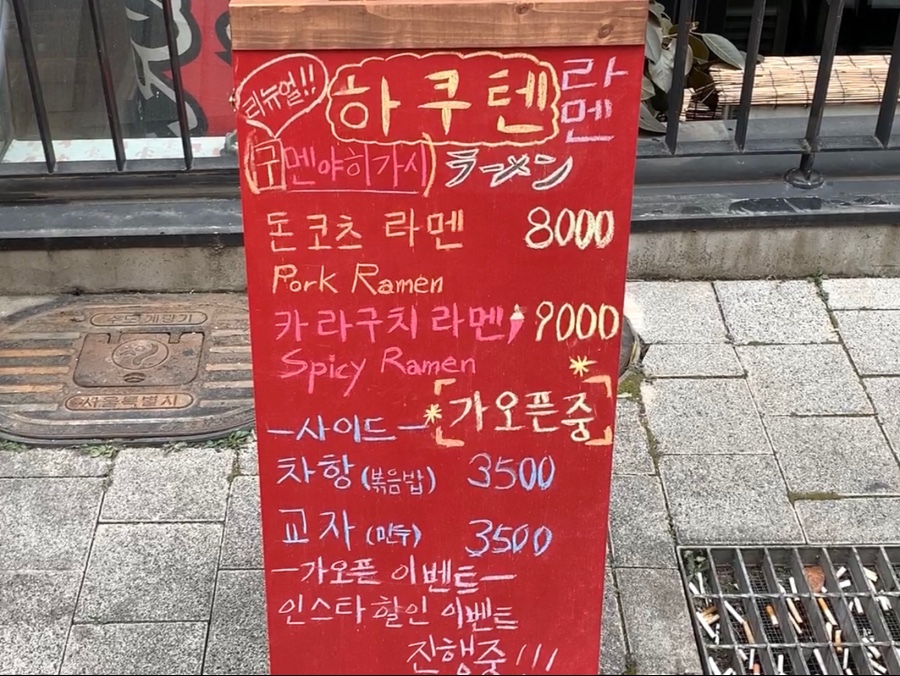 리뉴얼!!
하쿠텐 라멘
(구)멘야히가시) ラーメン
돈코츠 라멘 8000
Pork Ramen
카라구치라멘 9000
Spicy Ramen
* [가오픈중] *
-사이드-
차항 (볶음밥) 3500
교자 (만두) 3500
-가오픈 이벤트-
인스타할인 이벤트
진행중!!!
서울특별시